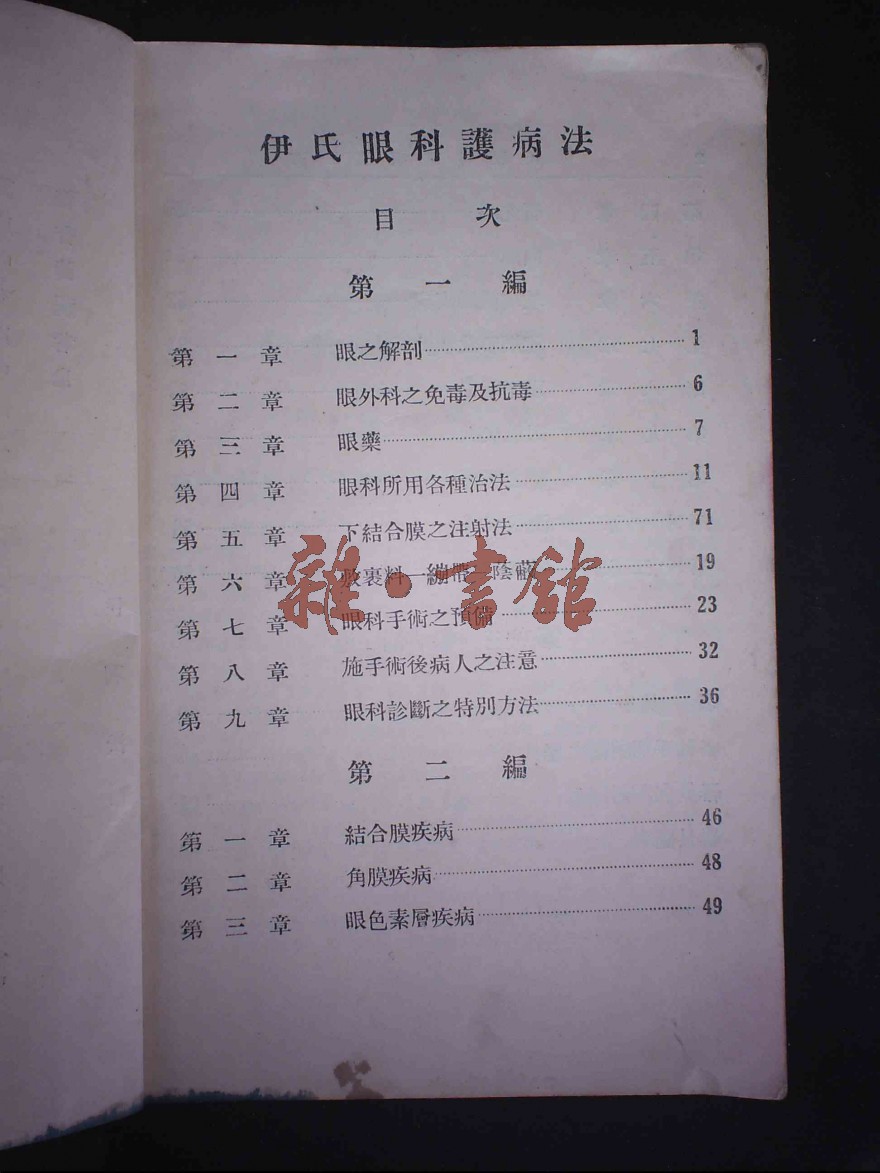 伊氏眼科護病法
目次
第一編
第一章 眼之解剖 1
第二章 眼外科之免毒及抗毒 6
第三章 眼藥 7
第四章 眼科所用各種治法 11
第五章 下結合膜之注射法 71
第六章 裹料—繃帶 陰蔽 19
第七章 眼科手術之預備 23
第八章 施手術後病人之注意 32
第九章 眼科診斷之特別方法 36
第二編
第一章 結合膜疾病 46
第二章 角膜疾病 48
第三章 眼色素層疾病 49
雜·書館